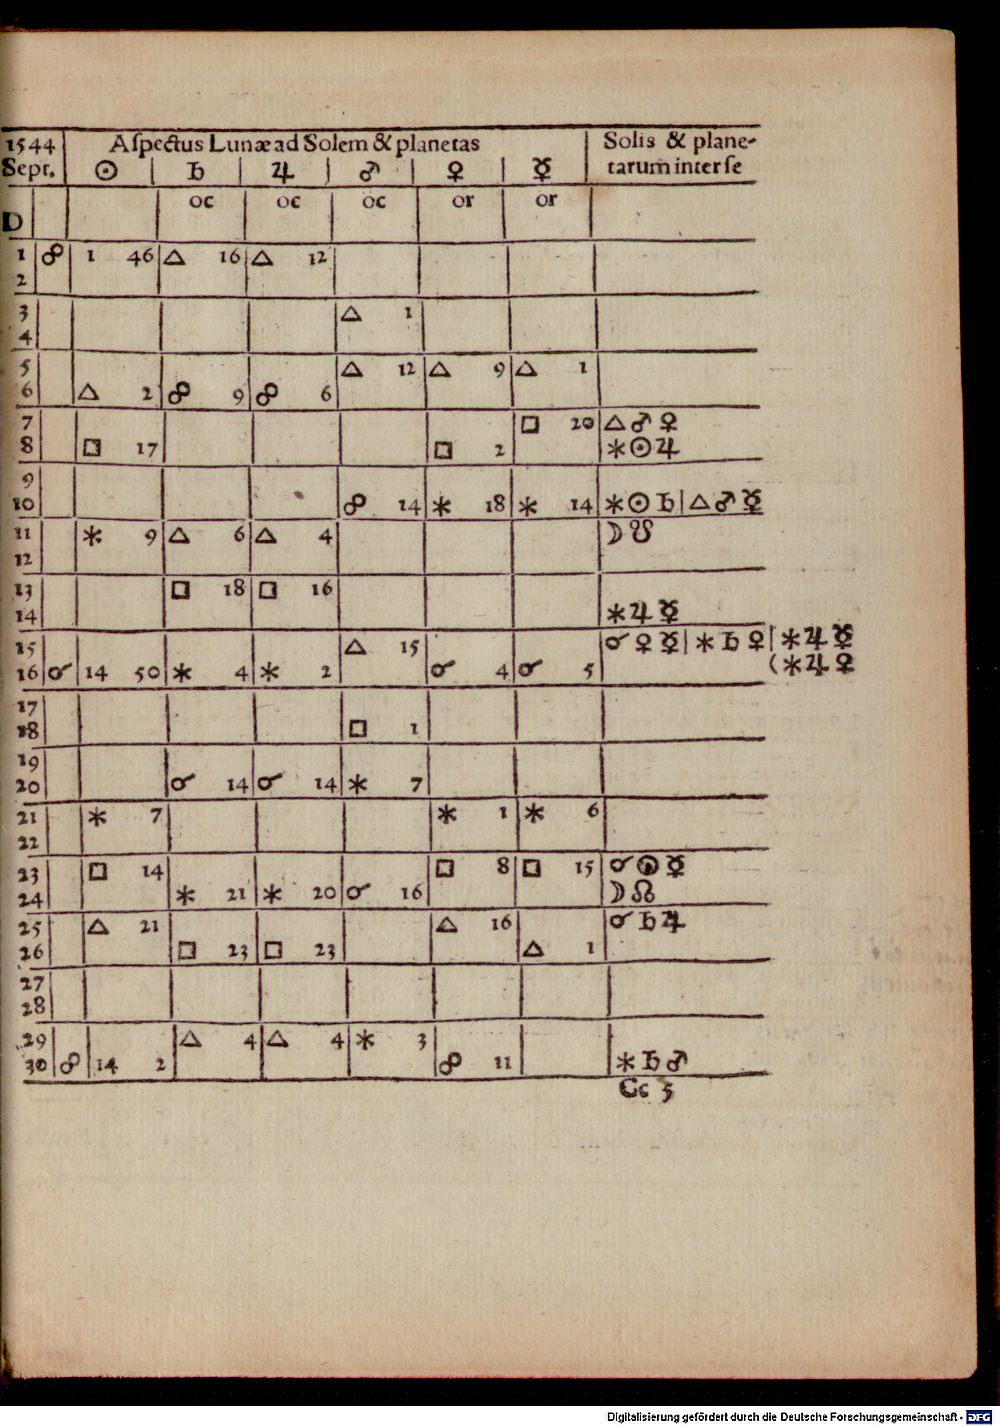 1544 Aſpectus Lunæ ad Solem & planetas Solis & plane-
Sept. ☉ ♄ ♃ ♂ ♀ ☿ tarum inter ſe
D oc oc oc or or
1 ☍ 1 46 △ 16 △ 12
2
3 △ 1
4
5 △ 12 △ 9 △ 1
6 △ 2 ☍ 9 ☍ 6
7 □ 20 △ ♂ ♀
8 □ 17 □ 2 ⚹ ☉ ♃
9
10 ☍ 14 ⚹ 18 ⚹ 14 ⚹ ☉ ♄ | △ ♂ ☿
11 ⚹ 9 △ 6 △ 4 ☽ ☋
12
13 □ 18 □ 16
14 ⚹ ♃ ☿
15 △ 15 ☌ ♀ ☿ | ⚹ ♄ ♀ | ⚹ ♃ ☿
16 ☌ 14 50 ⚹ 4 ⚹ 2 ☌ 4 ☌ 5 (⚹ ♃ ♀
17
18 □ 1
19
20 ☌ 14 ☌ 14 ⚹ 7
21 ⚹ 7 ⚹ 1 ⚹ 6
22
23 □ 14 □ 8 □ 15 ☌ ☉ ☿
24 ⚹ 21 ⚹ 20 ☌ 16 ☽ ☊
25 △ 21 △ 16 ☌ ♄ ♃
26 □ 23 □ 23 △ 1
27
28
29 △ 4 △ 4 ⚹ 3
30 ☍ 14 2 ☍ 11 ⚹ ♄ ♂
Cc 3
Digitalisierung gefördert durch die Deutsche Forschungsgemeinschaft - DFG